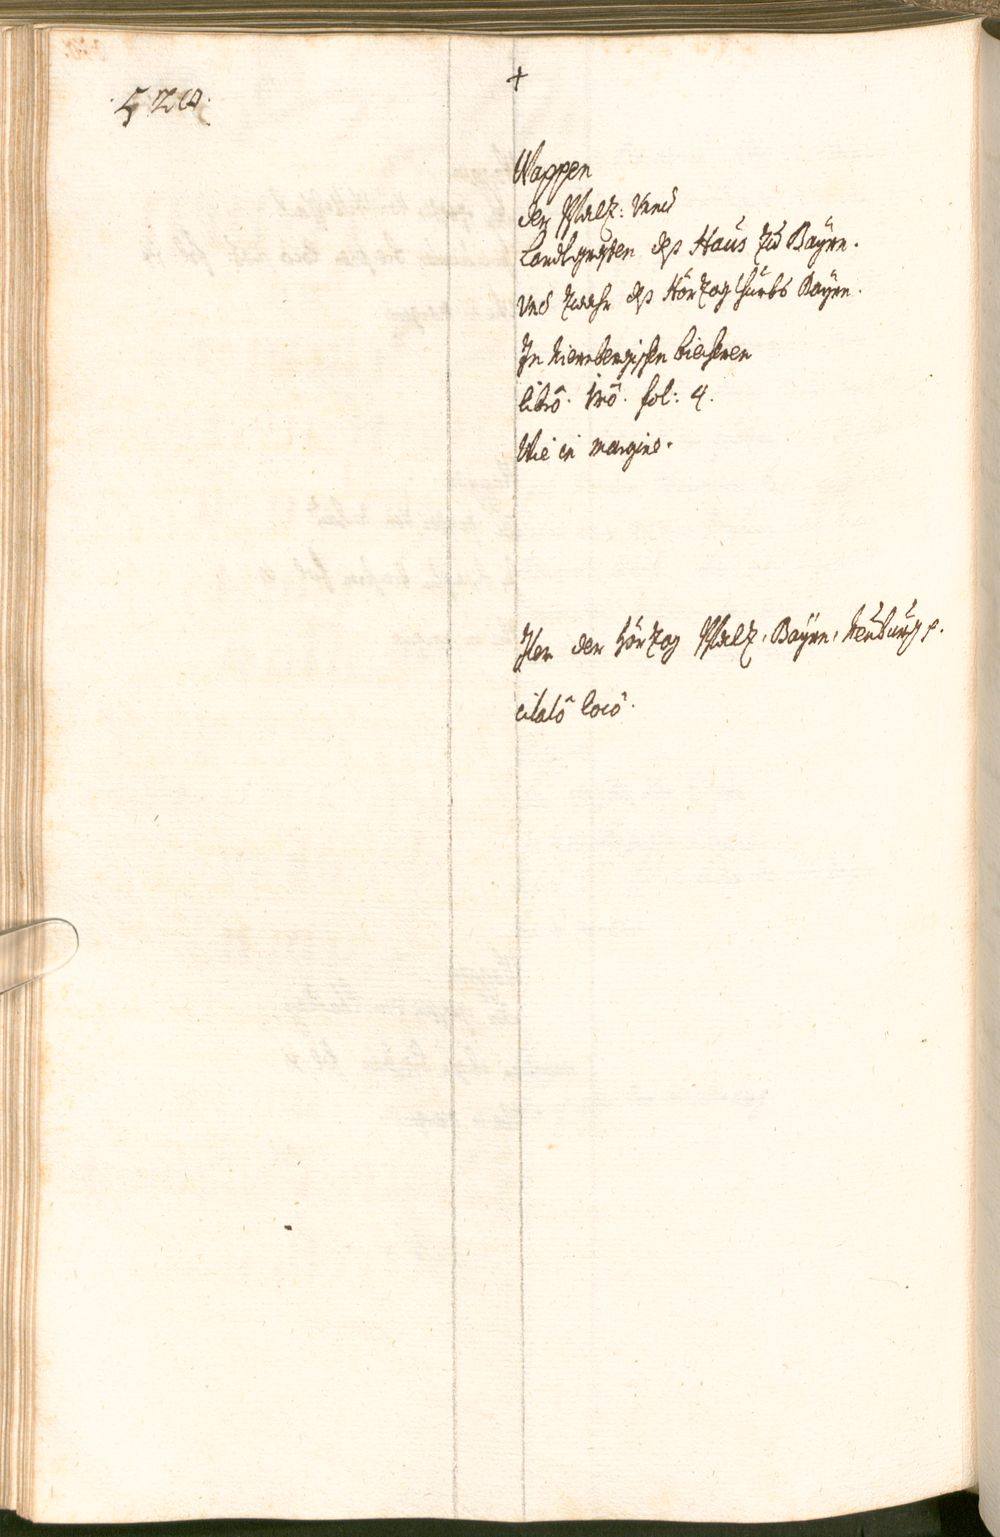 +
Wappen
der Pfalz: Vnnd
Landtgrafen deß Haus zu Bayrn.
Vnd zwahr deß Hörzogthurbs Bayrn.
In Niernbergischen biechern
librô. 1mô. fol: 4.
Wie in margine.
der Hörzog Pfalz, Bayrn, Neuburg
citatô locô.